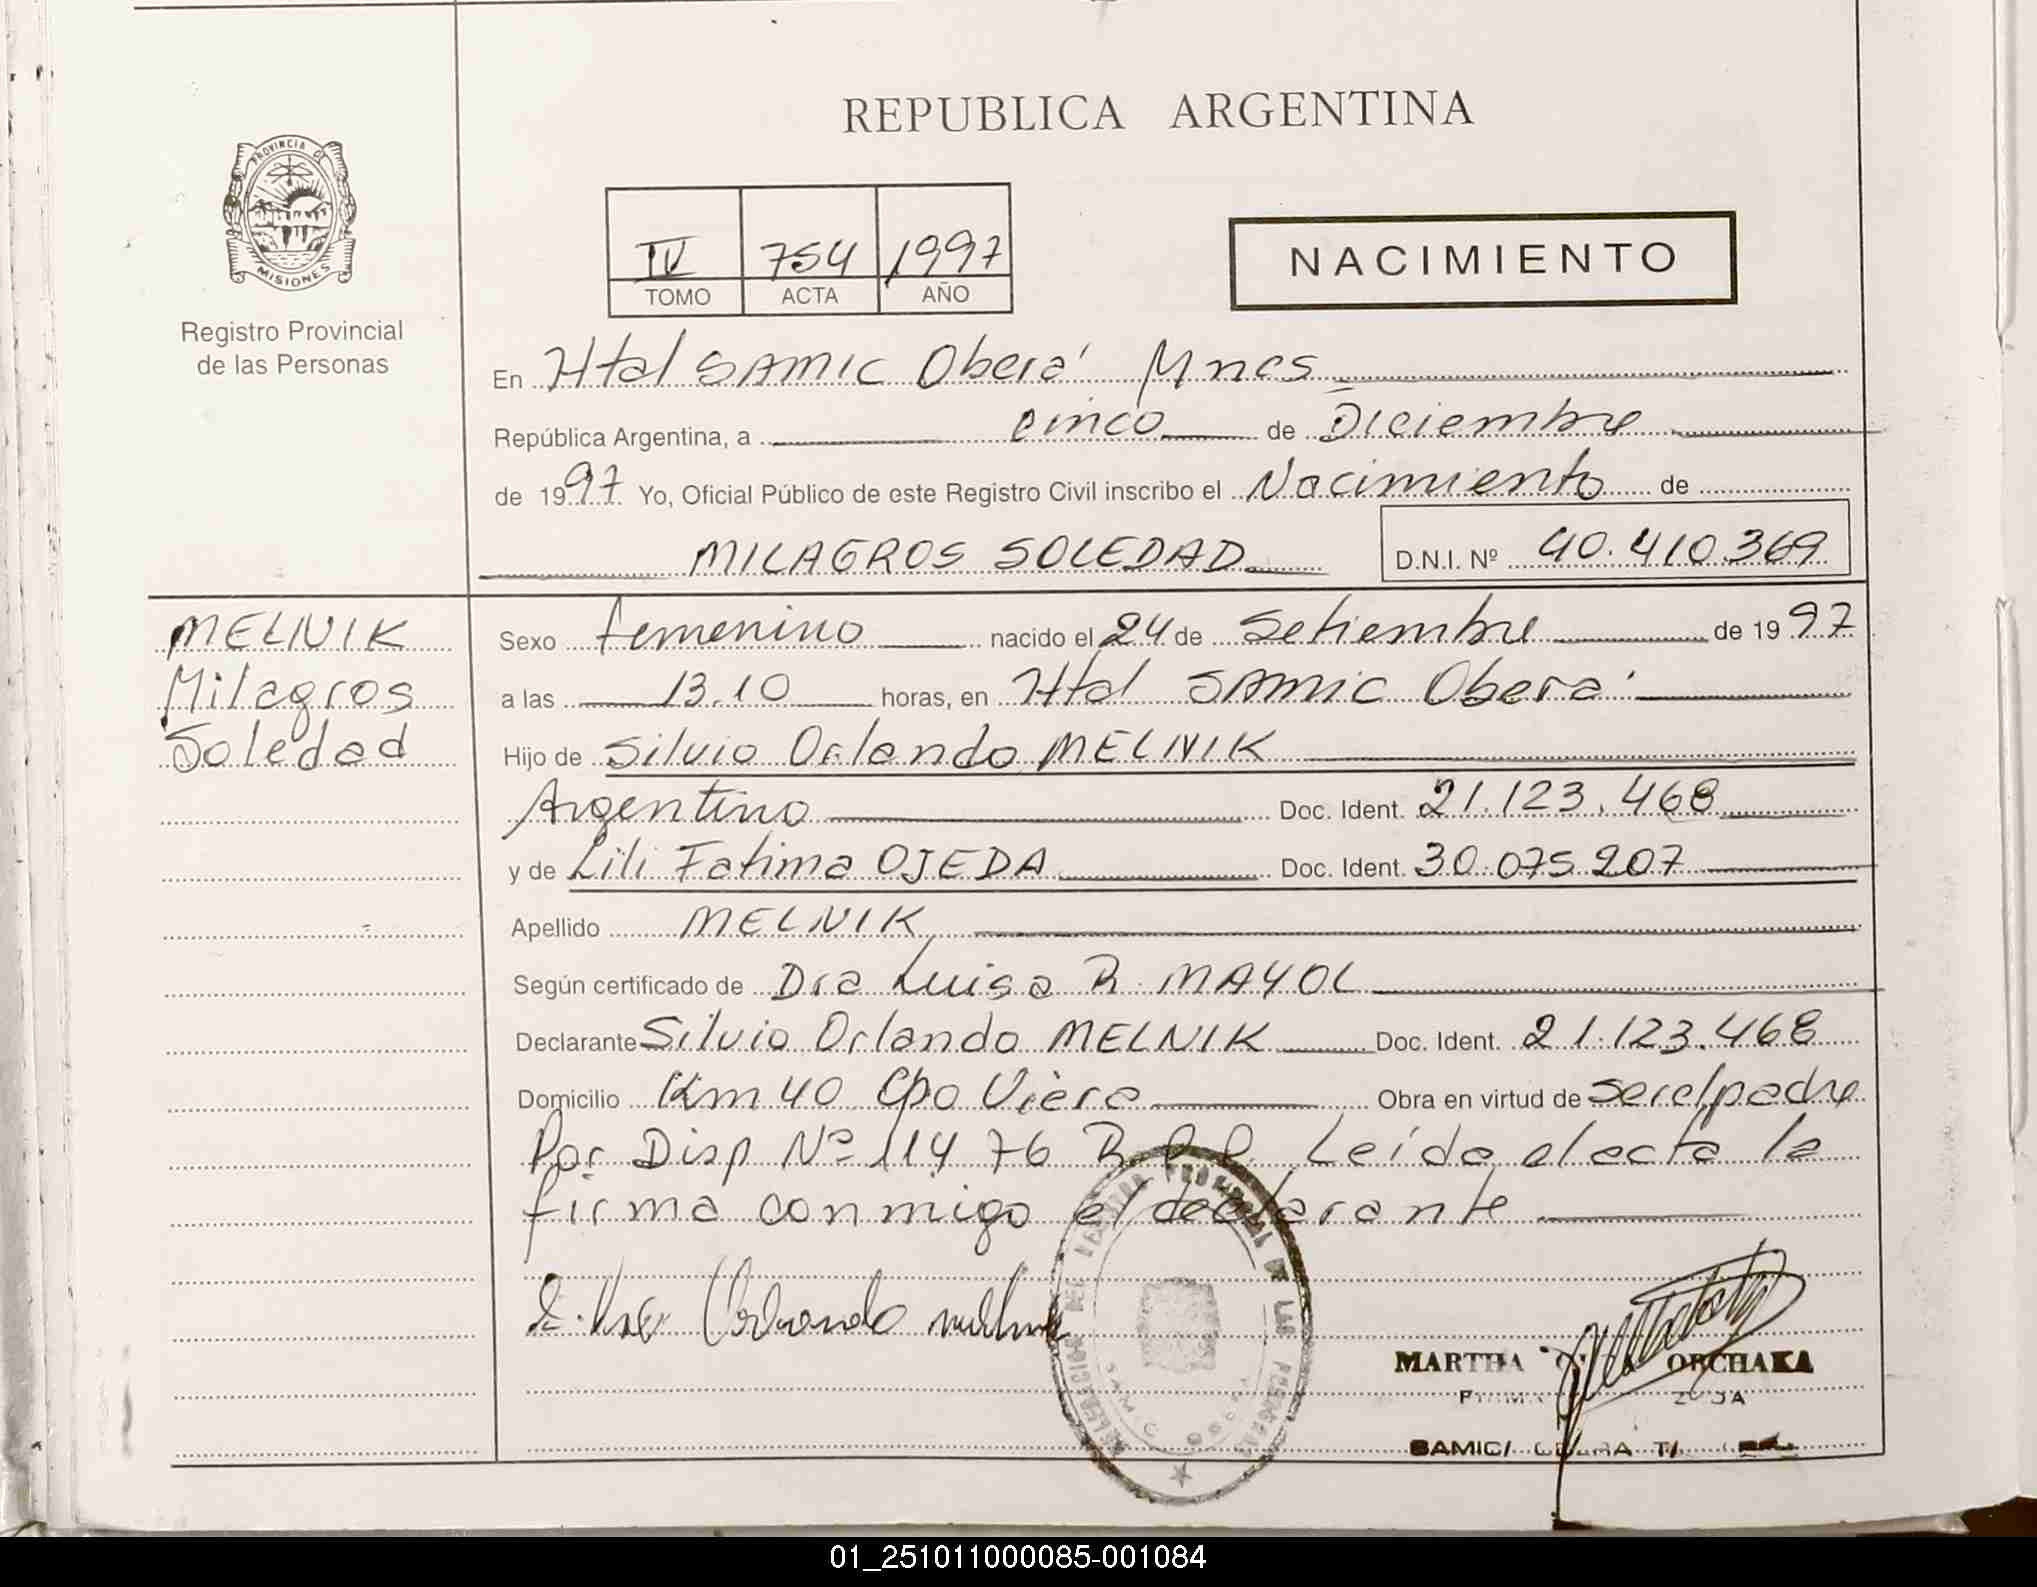 REPUBLICA ARGENTINA
PROVINCIA DE
MISIONES
Registro Provincial
de las Personas
IV 754 1997
TOMO ACTA AÑO
NACIMIENTO
En Htal SAMIC Oberá Mnes
República Argentina, a cinco de Diciembre
de 1997 Yo, Oficial Público de este Registro Civil inscribo el Nacimiento de
MILAGROS SOLEDAD D.N.I. Nº 40.410.369
MELNIK
Milagros
Soledad
Sexo femenino nacido el 24 de Setiembre de 1997
a las 13.10 horas, en Htal SAMIC Oberá
Hijo de Silvio Orlando MELNIK
Argentino Doc. Ident. 21.123.468
y de Lili Fatima OJEDA Doc. Ident. 30.075.207
Apellido MELNIK
Según certificado de Dra Luisa R. MAYOL
Declarante Silvio Orlando MELNIK Doc. Ident. 21.123.468
Domicilio Km 40 Cpo Viera Obra en virtud de ser el padre
Por Disp Nº 114 76 R.P.P. Leída el acta la
firma conmigo el declarante
Orlando
MARTHA ORCHAKA
SAMIC
01_251011000085-001084